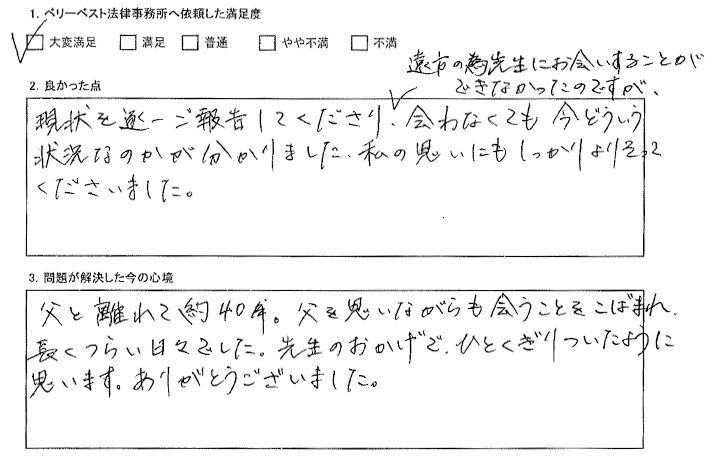 1. ベリーベスト法律事務所へ依頼した満足度
大変満足 満足 普通 やや不満 不満
遠方の為先生にお会いすることが
できなかったのですが、
2. 良かった点
現状を逐一ご報告してくださり、会わなくても今どういう
状況なのかが分かりました。私の思いにもしっかりよりそって
くださいました。
3. 問題が解決した今の心境
父と離れて約40年。父を思いながらも会うことをこばまれ、
長くつらい日々でした。先生のおかげで、ひとくぎりついたように
思います。ありがとうございました。